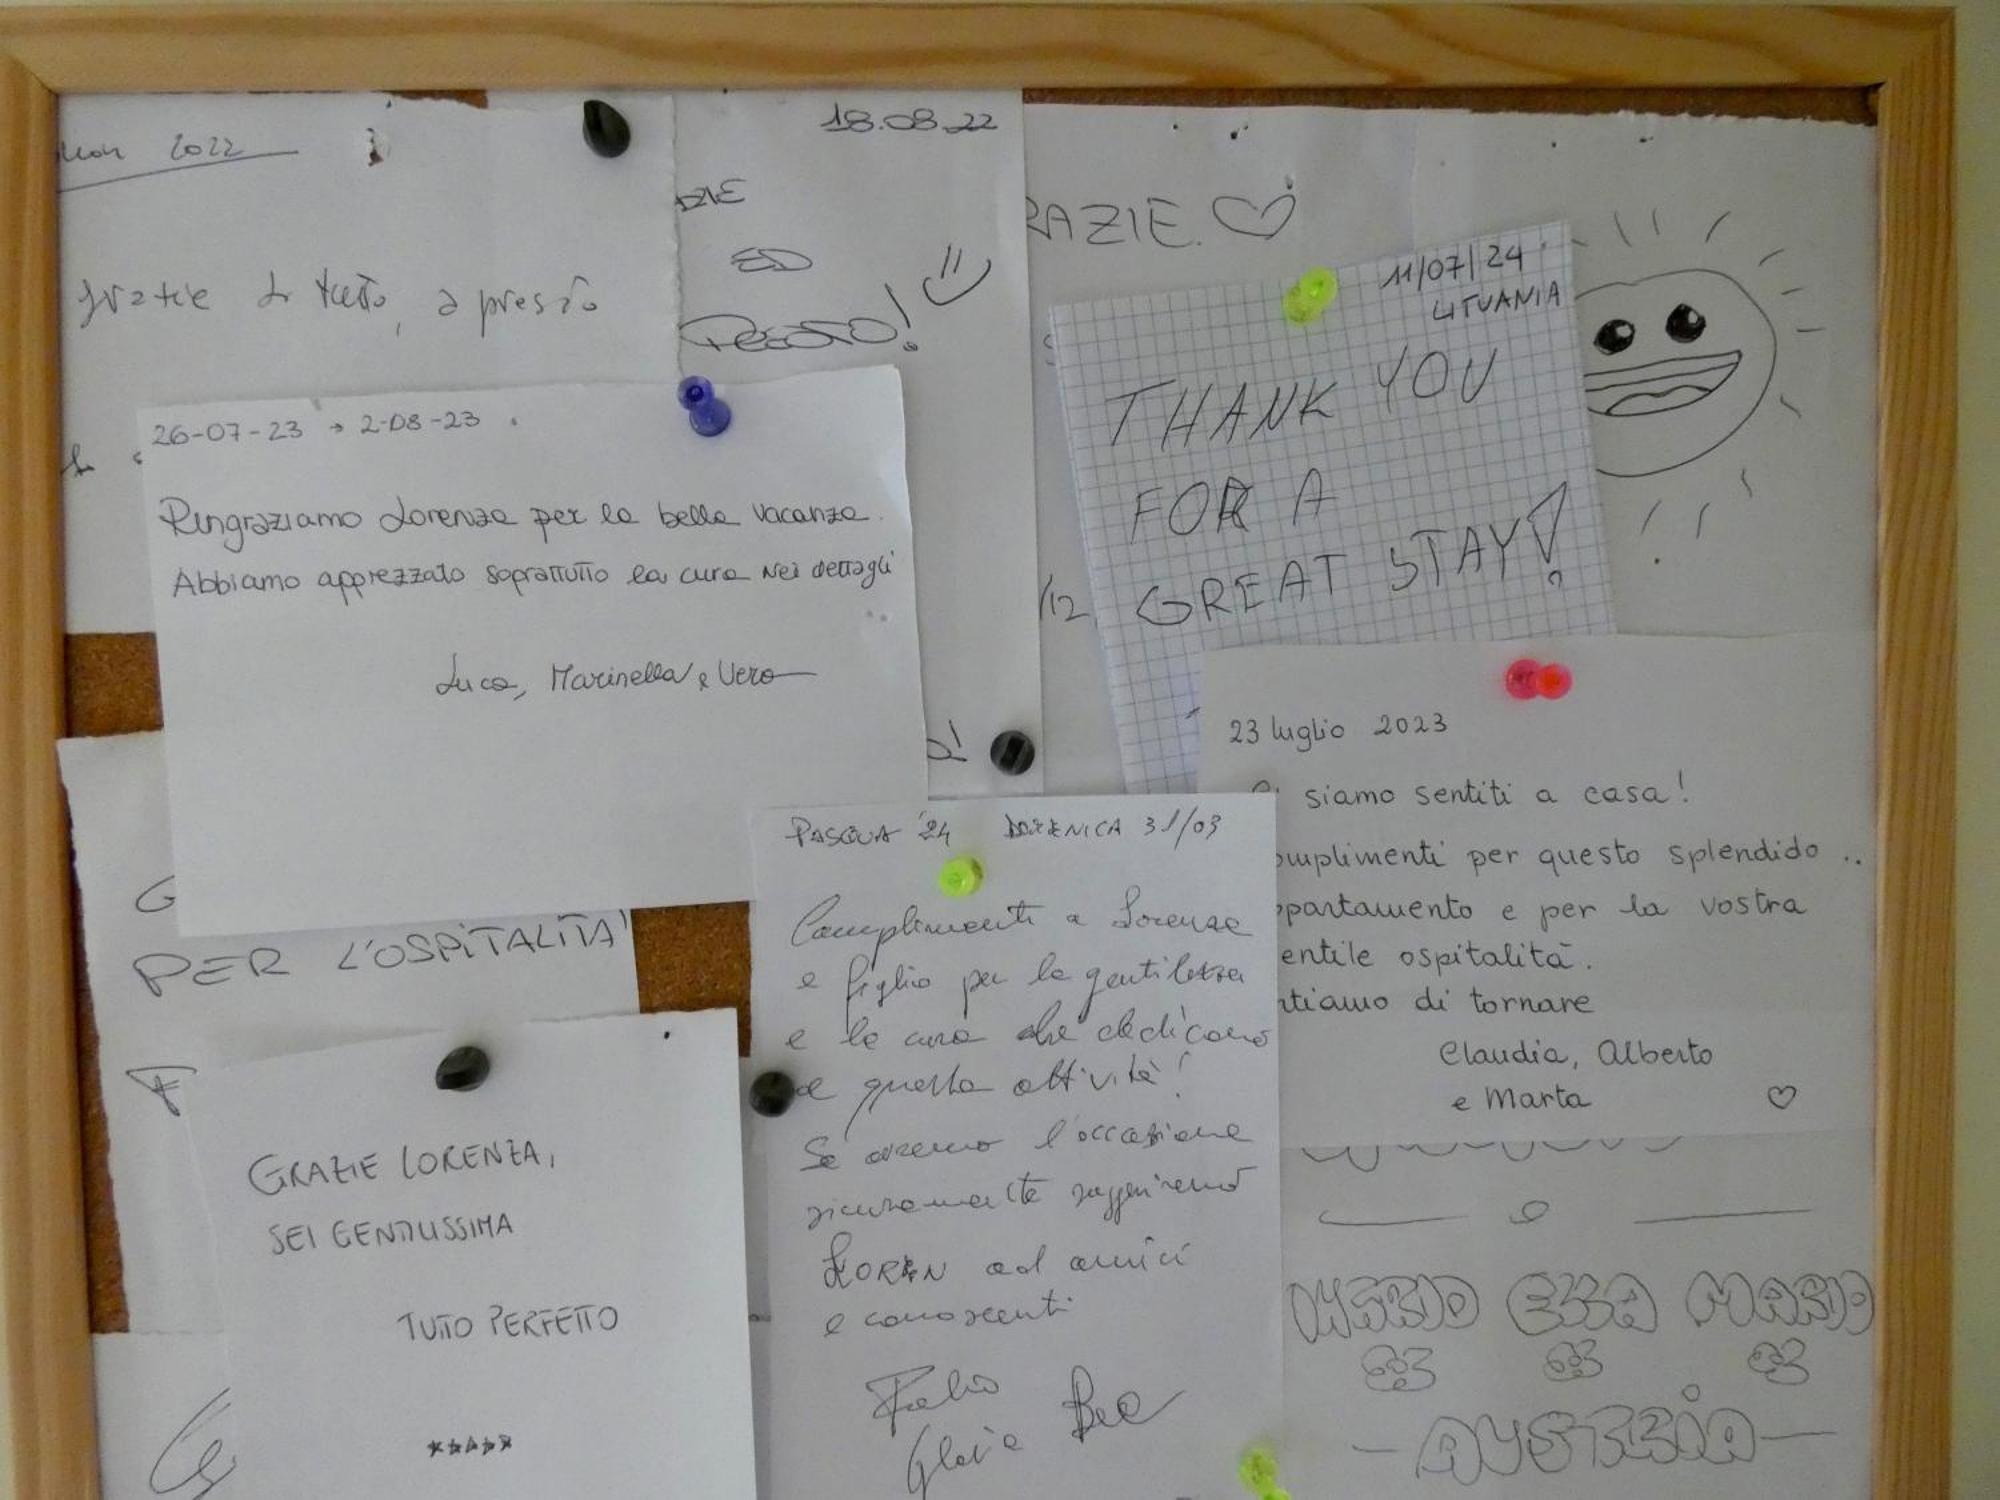 2022
Grazie di tutto, a presto
18.08.22
AZIE
ED
RAZIE.
/12
o!
11/07/24
LITUANIA
THANK YOU
FOR A
GREAT STAY!
26-07-23 → 2-08-23
Ringraziamo Lorenza per la bella vacanza.
Abbiamo apprezzato soprattutto la cura nei dettagli
Luca, Marinella e Vero
23 luglio 2023
siamo sentiti a casa!
omplimenti per questo splendido ..
ppartamento e per la vostra
entile ospitalità.
ntiamo di tornare
Claudia, Alberto
e Marta
G
PER L'OSPITALITA'
F
PASQUA '24 DOMENICA 31/03
Complimenti a Lorenza
e figlio per la gentilezza
e la cura che dedicano
a questa attività!
Se avremo l'occasione
sicuramente suggeriremo
LOREN ad amici
e conoscenti
Fabio
Gloria Bea
GRAZIE LORENZA,
SEI GENTILISSIMA
TUTTO PERFETTO
*****
INGRID ELSA MARIO
- AUSTRIA -